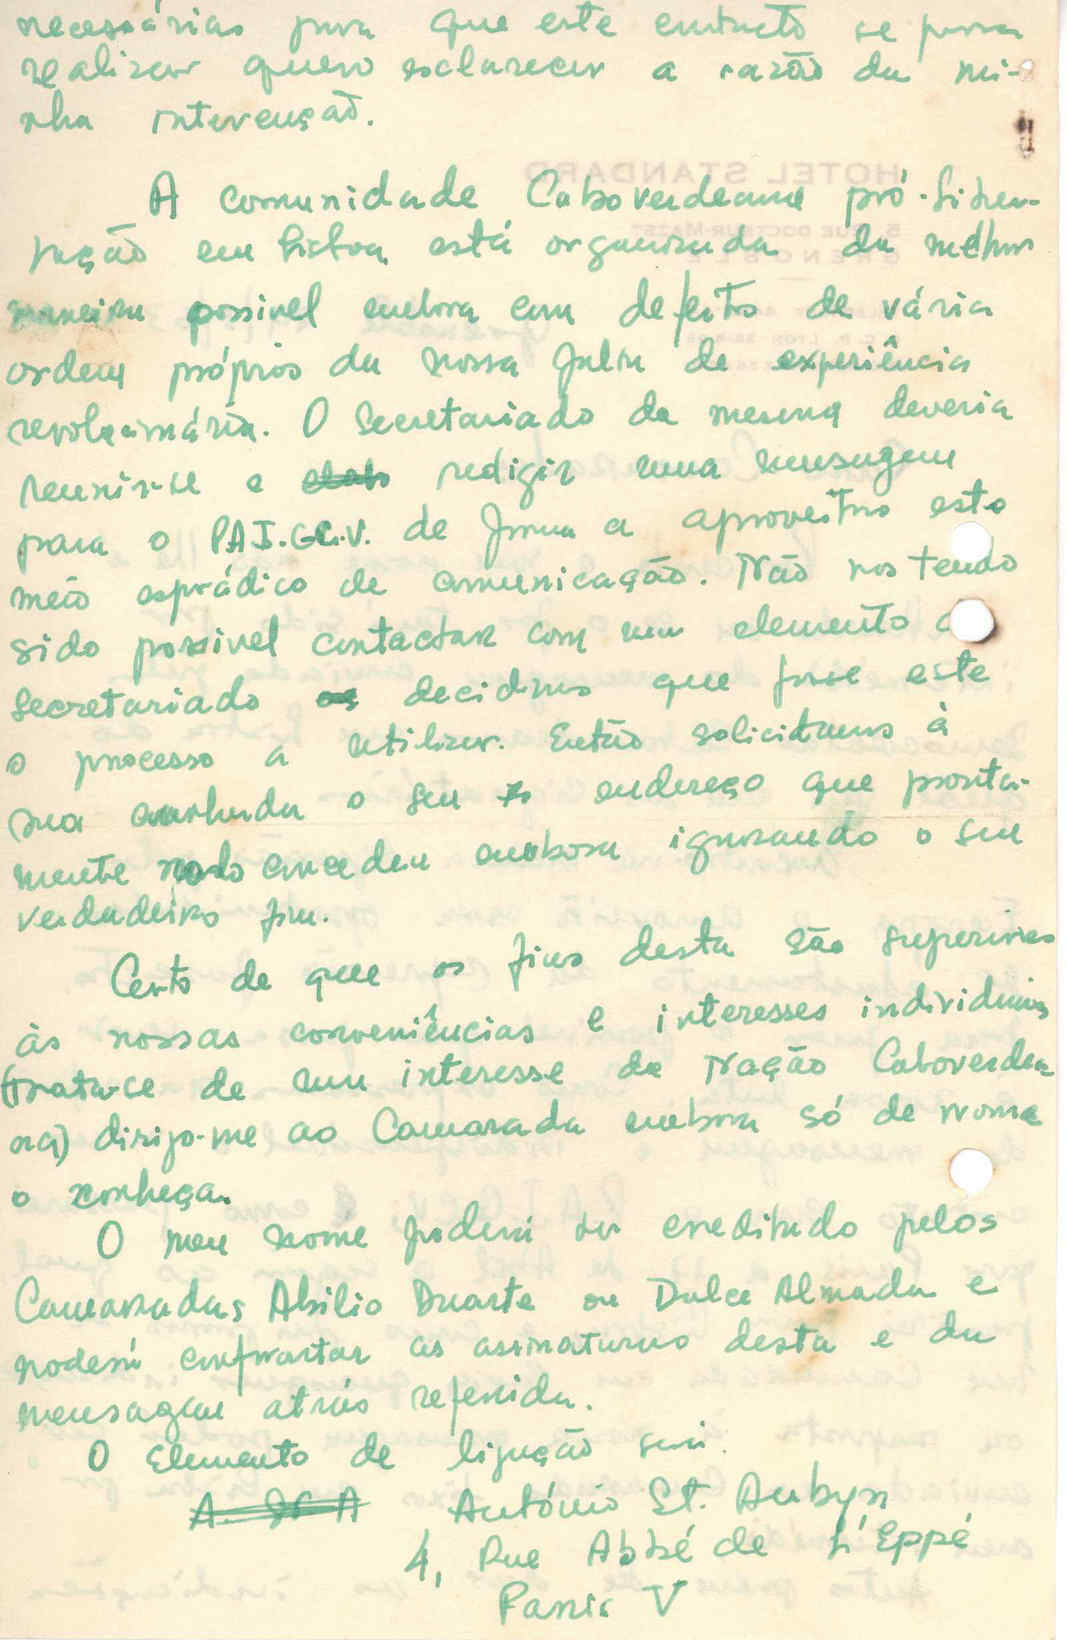 necessárias para que este contacto se possa
realizar quero esclarecer a razão da mi-
nha intervenção.
A comunidade Caboverdeana pró-liber-
tação em Lisboa está organizada da melhor
maneira possivel embora com defeitos de vária
ordem próprios da nossa falta de experiência
revolucionária. O Secretariado da mesma deveria
reunir-se e redigir uma mensagem
para o P.A.I.G.C.V. de forma a aproveitar este
meio esporádico de comunicação. Não nos tendo
sido possivel contactar com um elemento d
Secretariado decidimos que fosse este
o processo a utilizar. Então solicitamos à
sua cunhada o seu endereço que pronta-
mente concedeu embora ignorando o seu
verdadeiro fim.
Certo de que os fins desta são superiores
às nossas conveniências e interesses individuais
(trata-se de um interesse da Nação Caboverdea-
na) dirijo-me ao Camarada embora só de nome
o conheça.
O meu nome poderá ser creditado pelos
Camaradas Abilio Duarte ou Dulce Almada e
poderá confrontar as assinaturas desta e da
mensagem atrás referida.
O Elemento de ligação será
António St. Aubyn
4, Rue Abbé de L'Eppé
Paris V
HOTEL STANDARD
5, RUE DOCTEUR-MAZET
GRENOBLE